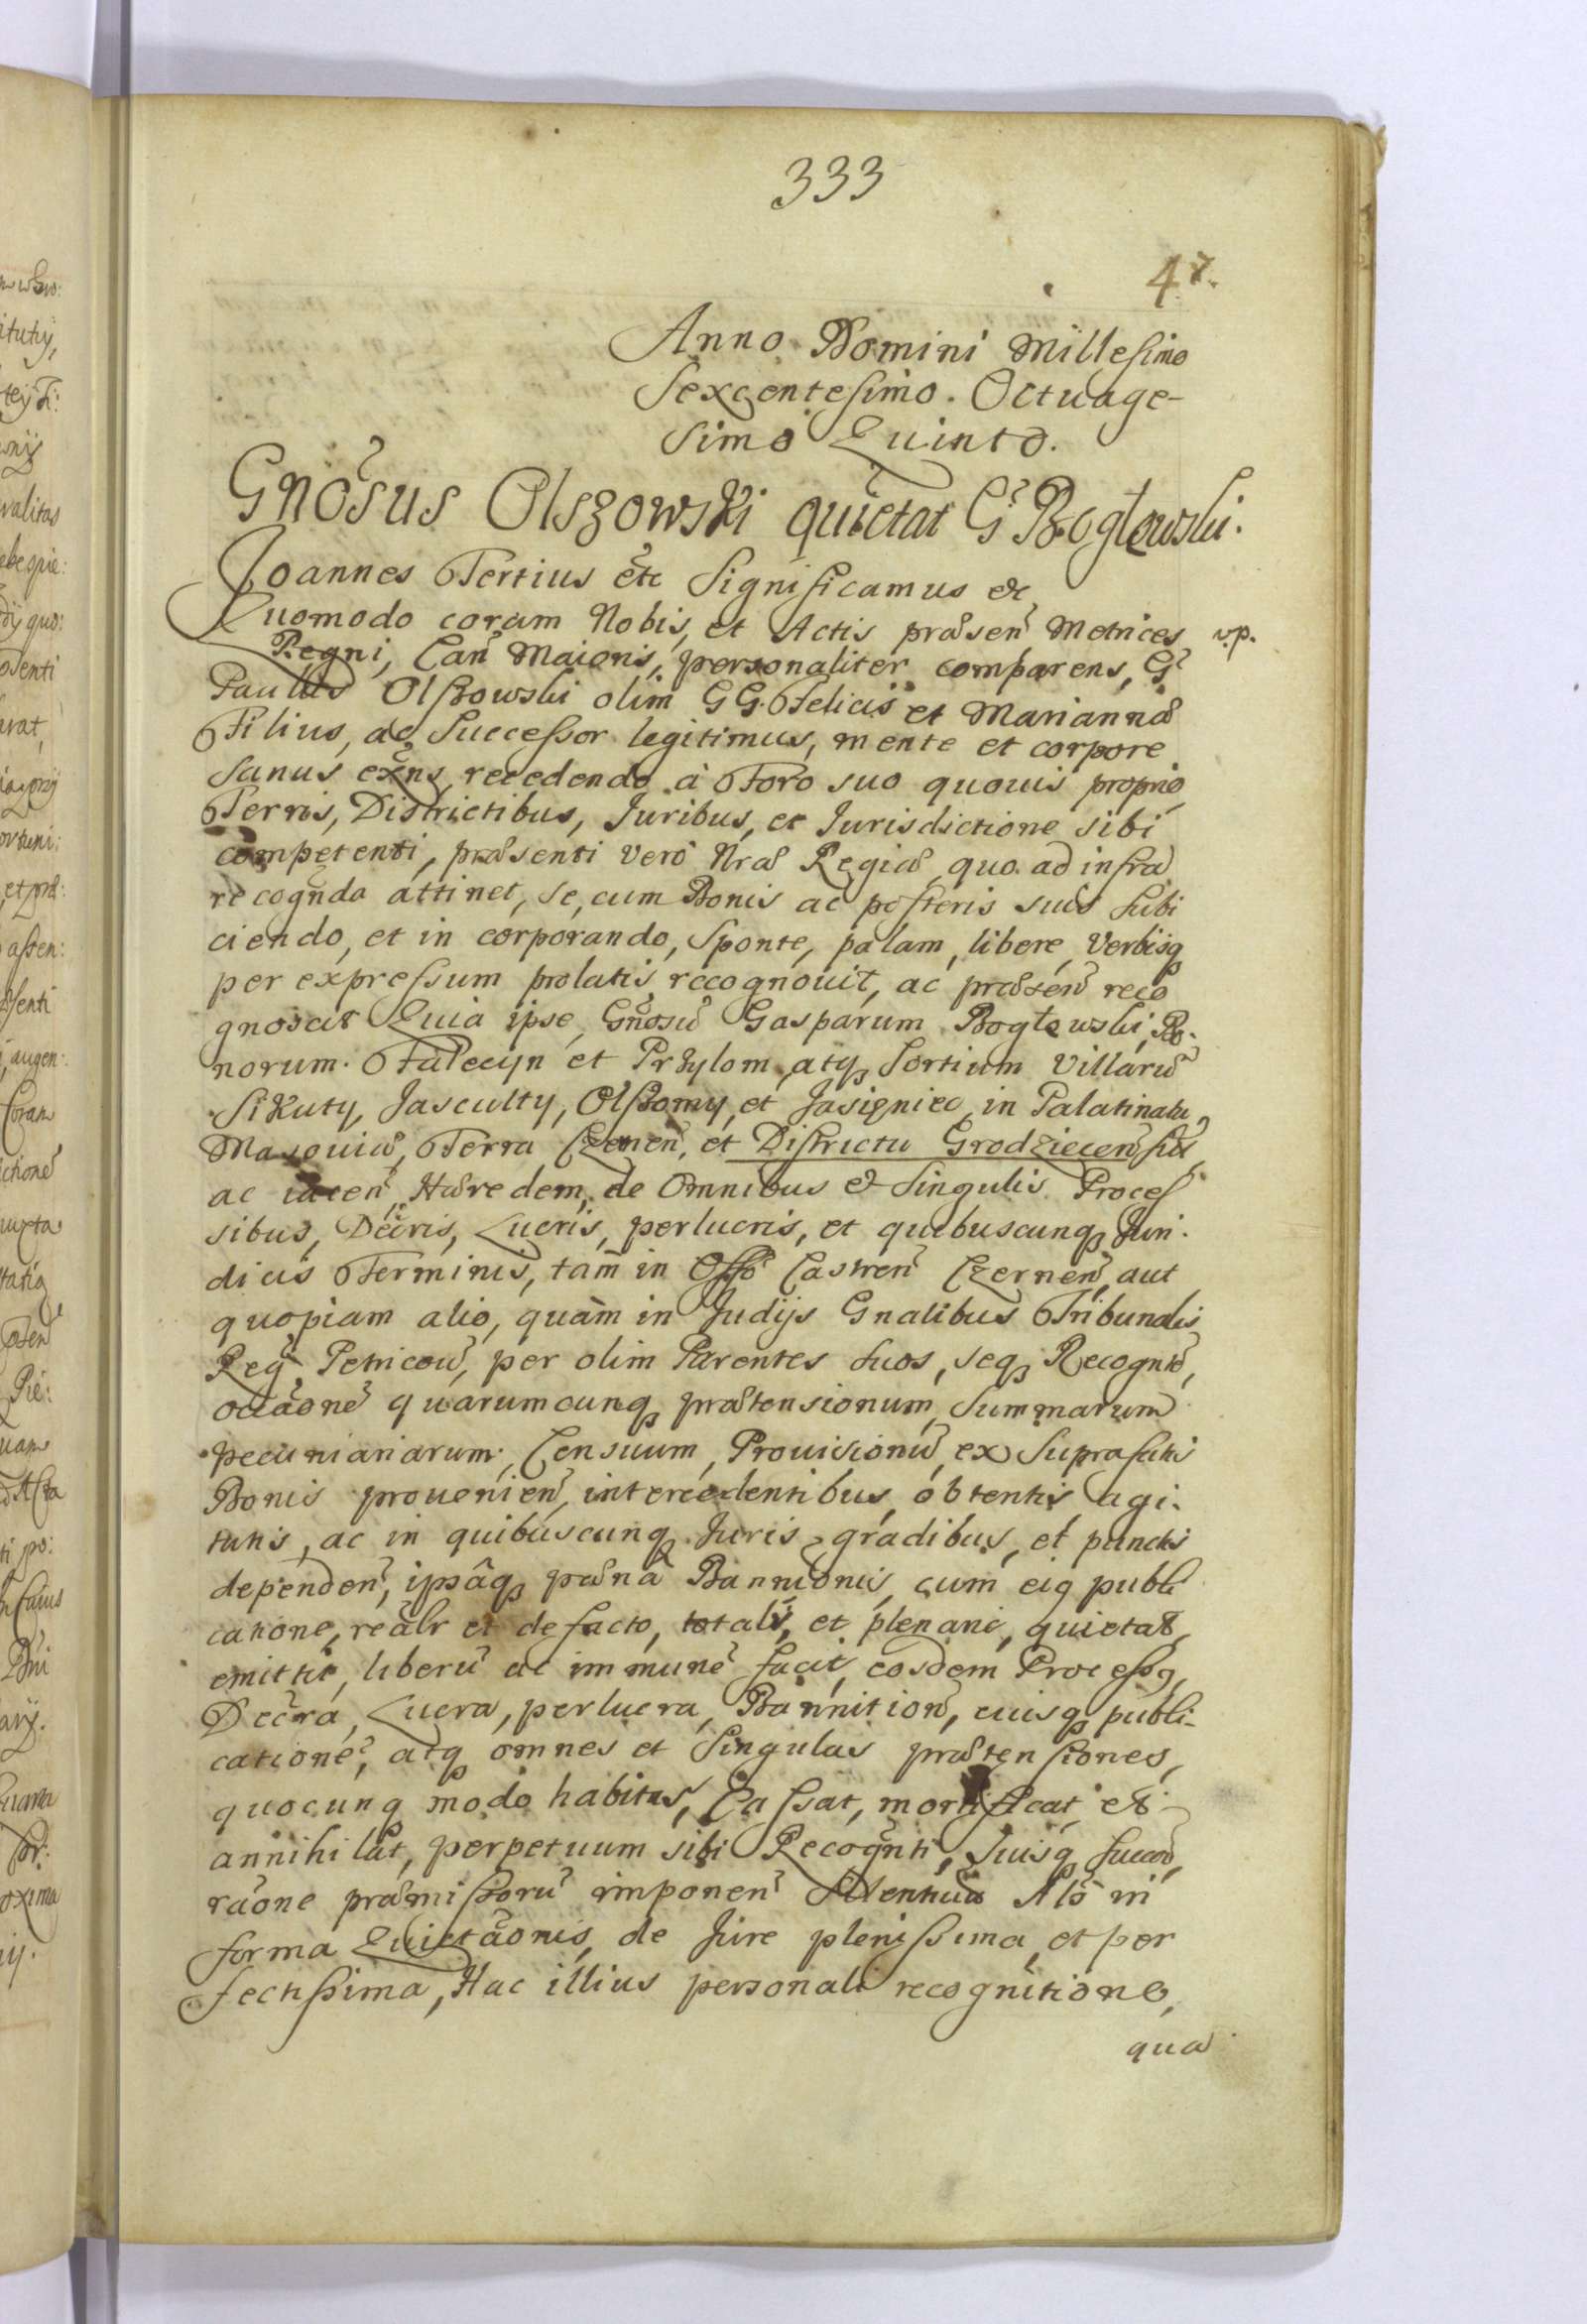 333
47.
Anno Domini Millesimo
Sexcentesimo. Octuage-
simo Quinto.
Gnosus Olszowski quietat G Bogłewski.
Joannes Tertius etc Significamus etc
Quomodo coram Nobis, et Actis præsen Metrices v.p.
Regni, Can Maioris, personaliter comparens, G
Paulus Olszowski olim GG. Felicis et Mariannæ
Filius, ac Successor legitimus, mente et corpore
sanus exns, recedendo à Foro suo quouis proprio
Terris, Districtibus, Juribus, et Jurisdictione sibi
competenti, præsenti verò Nræ Regiæ, quo ad infra
recognda attinet, se, cum Bonis ac posteris suis subi
ciendo, et in corporando, sponte, palam, libere, Verbisq
per expressum prolatis recognouit, ac præsen reco
gnoscit Quia ipse, Gnosu Gasparum Bogłewski, Bo-
norum. Falecyn et Przylom, atq Sortium Villaru
Sikuty, Jasculty, Olszomy, et Jasigniec in Palatinatu
Masouiæ, Terra Czernen, et Districtu Grodziecen
ac iacen, Hæredem, de Omnibus et Singulis Proces
sibus, Decris, Lucris, perlucris, et quibuscunq Juri-
dicis Terminis, tam in Offo Castren Czernen, aut
quopiam alio, quàm in Judijs Gnalibus Tribunalis
Reg, Petricou, per olim Parentes suos, seq Recognte,
occaone quarumcunq prætensionum, Summarum
pecuniariarum, Censuum, Prouisionu, ex suprafatis
Bonis prouenien, intercedentibus, obtentis agi-
tatis, ac in quibuscunq Juris gradibus, et punctis
dependen, ipsâq pænâ Bannionis, cum eiq publi
catione, realr et de facto, et plenarie, quietat,
emittit, liberu ac immune facit, eosdem Processq,
Decra, Lucra, perlucra, Bannition, euisq publi-
catione, atq omnes et Singulas prætensiones,
quocunq modo habitas, Cassat, mortificat et
annihilat, perpetuum sibi Recognti, suisq succou,
raone præmissoru imponen Silentium
forma Quictaonis, de Jure plenissima, et per
fectissima, Hac illius personali recognitione,
qua